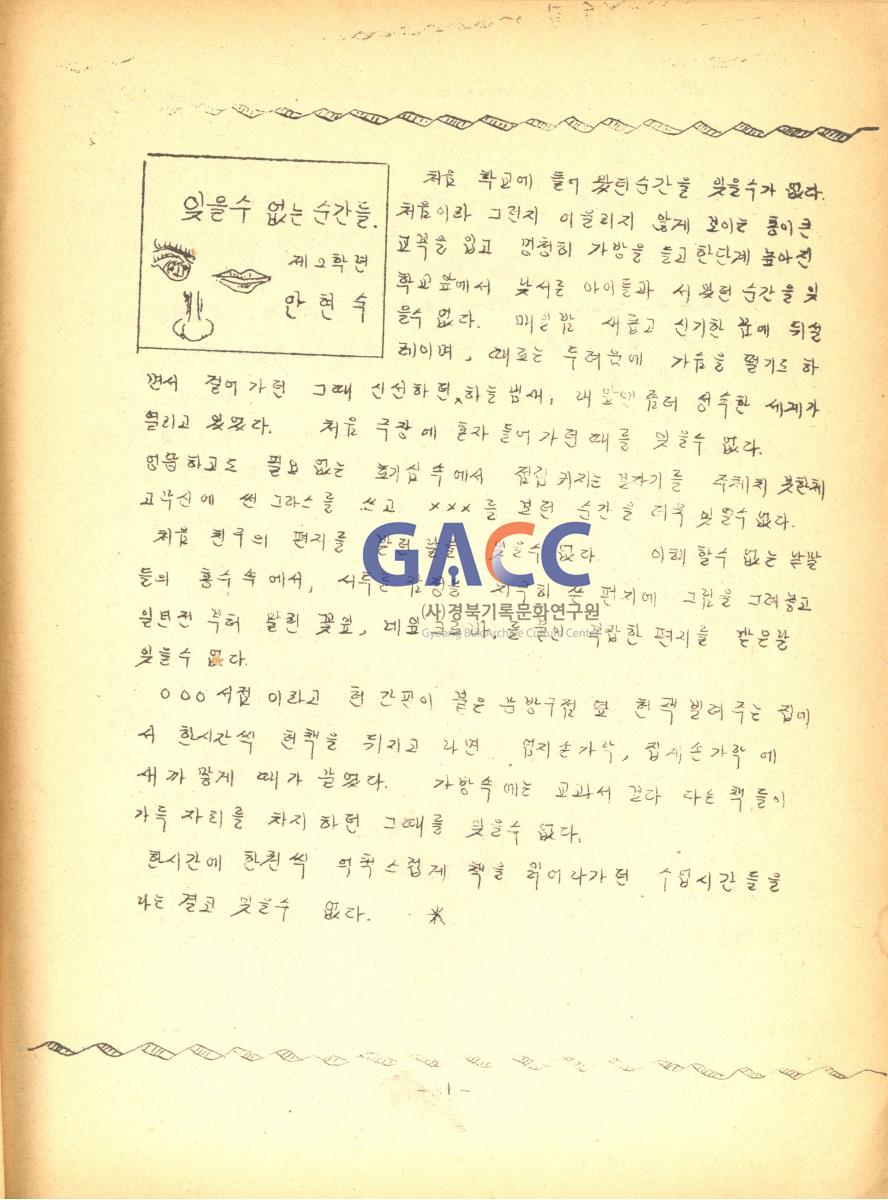 잊을수 없는 순간들.
제2학년
안현숙
처음 학교에 들어 왔던순간을 잊을수가 없다.
처음이라 그런지 어울리지 않게 보이는 통이큰
교복을 입고 멍청히 가방을 들고 한단계 높아진
학교앞에서 낯서른 아이들과 서 있던 순간을 잊
을수 없다. 매일밤 새롭고 신기한 꿈에 뒤설
레이며, 때로는 두려움에 가슴을 떨기도 하
면서 걸어가던 그때 신선하던 하늘냄새, 좀더 성숙한 세계가
열리고 있었다. 처음 극장에 혼자 들어가던때를 잊을수 없다.
엉뚱하고도 필요 없는 호기심 속에서 점점 커지는 주체치 못한채
고무신에 썬그라스를 쓰고 xxx를 보던 순간을 더욱 잊을수 없다.
처음 친구의 편지를 받던 날을 잊을수 없다. 이해 할수 없는 낱말
들의 홍수속에서, 서투른 감정을 쓴 편지에 그림을 그려놓고
일년전 부터 말린 꽃잎, 네잎 편지를 받은날
잊을수 없다.
ooo서점 이라고 헌 간판이 붙은 문방구점 옆 헌책 빌려주는 집에
서 한시간씩 헌책을 뒤지고 나면 엄지손가락, 집게손가락에
새까맣게 때가 끓었다. 가방속에는 교과서 보다 다른 책들이
가득 자리를 차지하던 그때를 잊을수 없다.
한시간에 한권씩 억척스럽게 책을 읽어나가던 수업시간들을
나는 결코 잊을수 없다. ※
GACC
(사)경북기록문화연구원
Gyeong Buk Archive Culture Center
- 1 -